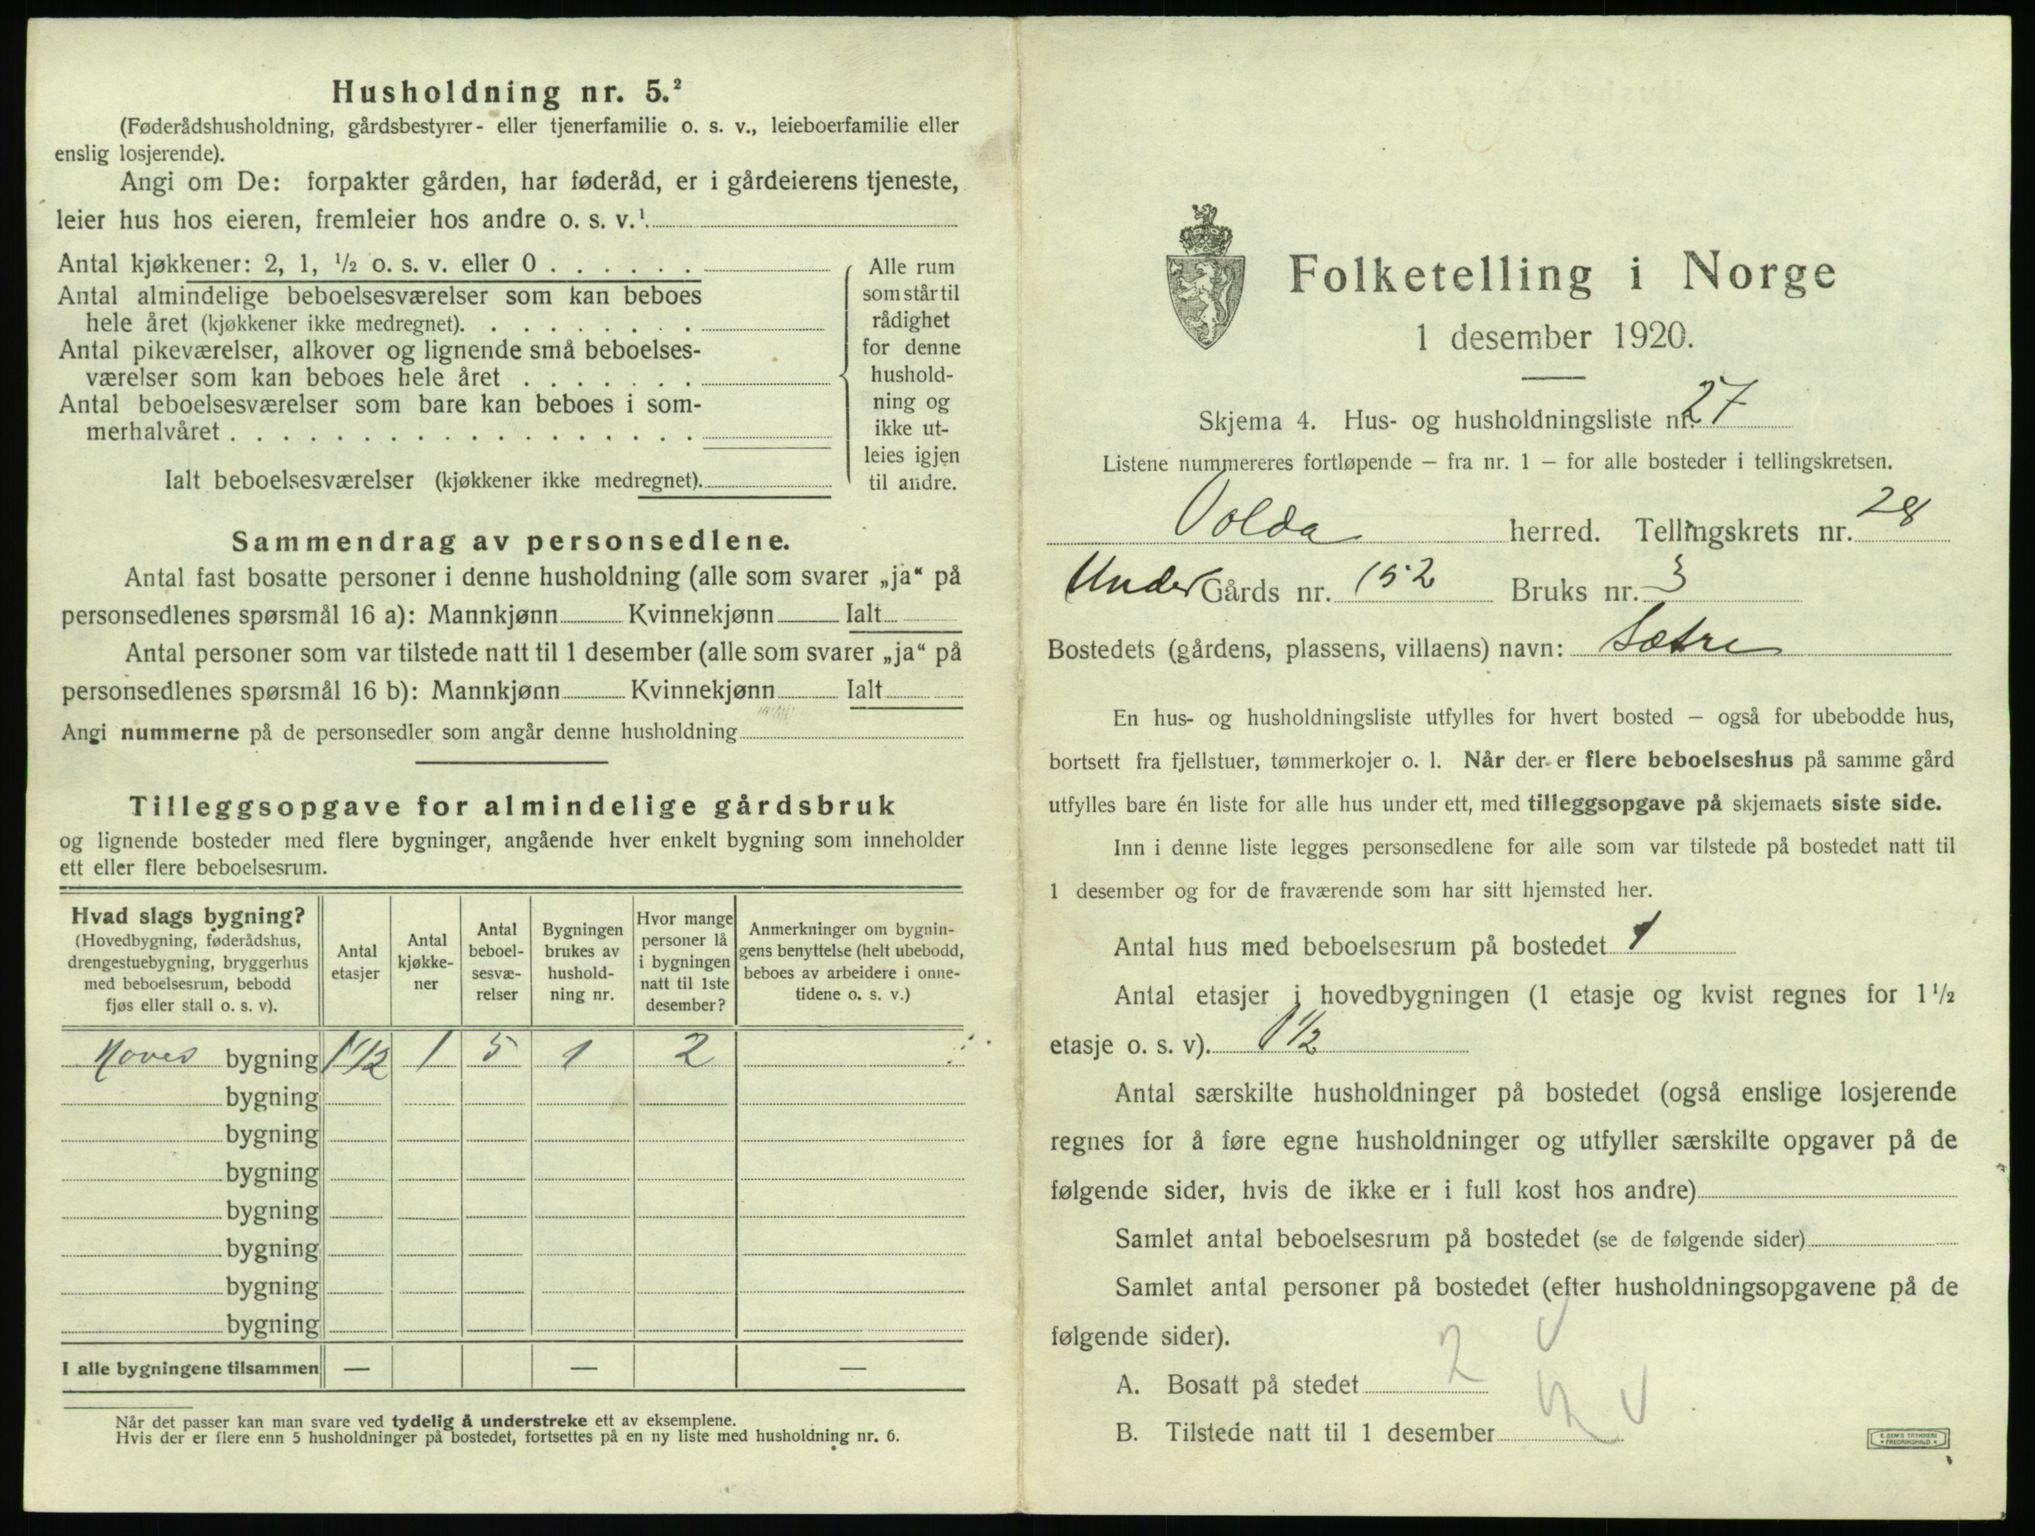 Husholdning nr. 5.²
(Føderådshusholdning, gårdsbestyrer- eller tjenerfamilie o. s. v., leieboerfamilie eller
enslig losjerende).
Angi om De: forpakter gården, har føderåd, er i gårdeierens tjeneste,
leier hus hos eieren, fremleier hos andre o. s. v.¹
Antal kjøkkener: 2, 1, ½ o. s. v. eller 0 . . . . . .
Antal almindelige beboelsesværelser som kan beboes
hele året (kjøkkener ikke medregnet). . . . . . . . .
Antal pikeværelser, alkover og lignende små beboelses-
værelser som kan beboes hele året . . . . . . .
Antal beboelsesværelser som bare kan beboes i som-
merhalvåret . . . . . . . . . . . . . . . . . .
Ialt beboelsesværelser (kjøkkener ikke medregnet).
Alle rum
som står til
rådighet
for denne
hushold-
ning og
ikke ut-
leies igjen
til andre.
Sammendrag av personsedlene.
Antal fast bosatte personer i denne husholdning (alle som svarer „ja“ på
personsedlenes spørsmål 16 a): Mannkjønn Kvinnekjønn Ialt
Antal personer som var tilstede natt til 1 desember (alle som svarer „ja“ på
personsedlenes spørsmål 16 b): Mannkjønn Kvinnekjønn Ialt
Angi nummerne på de personsedler som angår denne husholdning
Tilleggsopgave for almindelige gårdsbruk
og lignende bosteder med flere bygninger, angående hver enkelt bygning som inneholder
ett eller flere beboelsesrum.
Hvad slags bygning?
(Hovedbygning, føderådshus,
drengestuebygning, bryggerhus
med beboelsesrum, bebodd
fjøs eller stall o. s. v).
Antal
etasjer
Antal
kjøkke-
ner
Antal
beboel-
sesvæ-
relser
Bygningen
brukes av
hushold-
ning nr.
Hvor mange
personer lå
i bygningen
natt til 1ste
desember?
Anmerkninger om bygnin-
gens benyttelse (helt ubebodd,
beboes av arbeidere i onne-
tidene o. s. v.)
Hoved bygning 1 1/2 1 5 1 2
bygning
bygning
bygning
bygning
bygning
bygning
bygning
I alle bygningene tilsammen — — —
Når det passer kan man svare ved tydelig å understreke ett av eksemplene.
Hvis der er flere enn 5 husholdninger på bostedet, fortsettes på en ny liste med husholdning nr. 6.
Folketelling i Norge
1 desember 1920.
Skjema 4. Hus- og husholdningsliste nr. 27
Listene nummereres fortløpende – fra nr. 1 – for alle bosteder i tellingskretsen.
Volda herred. Tellingskrets nr. 28
Under Gårds nr. 152 Bruks nr. 3
Bostedets (gårdens, plassens, villaens) navn: Sætre
En hus- og husholdningsliste utfylles for hvert bosted – også for ubebodde hus,
bortsett fra fjellstuer, tømmerkojer o. l. Når der er flere beboelseshus på samme gård
utfylles bare én liste for alle hus under ett, med tilleggsopgave på skjemaets siste side.
Inn i denne liste legges personsedlene for alle som var tilstede på bostedet natt til
1 desember og for de fraværende som har sitt hjemsted her.
Antal hus med beboelsesrum på bostedet 1
Antal etasjer i hovedbygningen (1 etasje og kvist regnes for 1½
etasje o. s. v). 1 1/2
Antal særskilte husholdninger på bostedet (også enslige losjerende
regnes for å føre egne husholdninger og utfyller særskilte opgaver på de
følgende sider, hvis de ikke er i full kost hos andre)
Samlet antal beboelsesrum på bostedet (se de følgende sider)
Samlet antal personer på bostedet (efter husholdningsopgavene på de
følgende sider).
A. Bosatt på stedet 2
B. Tilstede natt til 1 desember 2
E. SEM'S TRYKKERI
FREDRIKSHALD